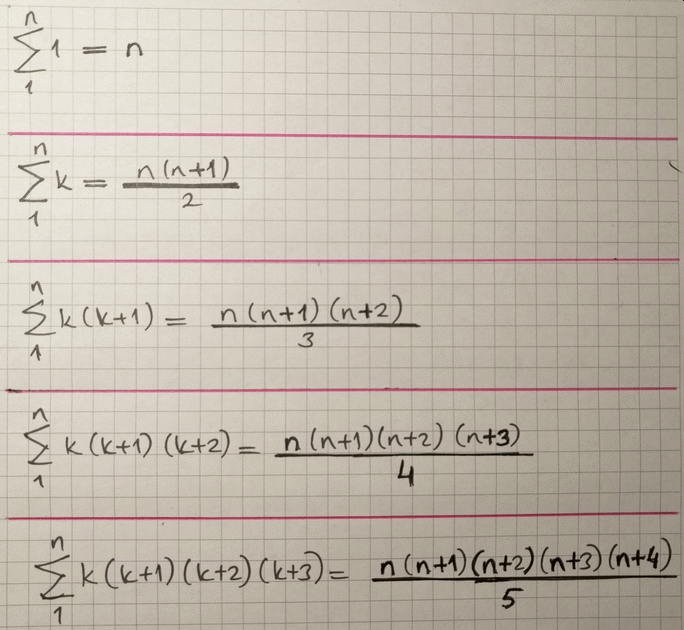 n∑1 1 = n
n∑1 k = n(n+1)/2
n∑1 k(k+1) = n(n+1)(n+2)/3
n∑1 k(k+1)(k+2) = n(n+1)(n+2)(n+3)/4
n∑1 k(k+1)(k+2)(k+3) = n(n+1)(n+2)(n+3)(n+4)/5